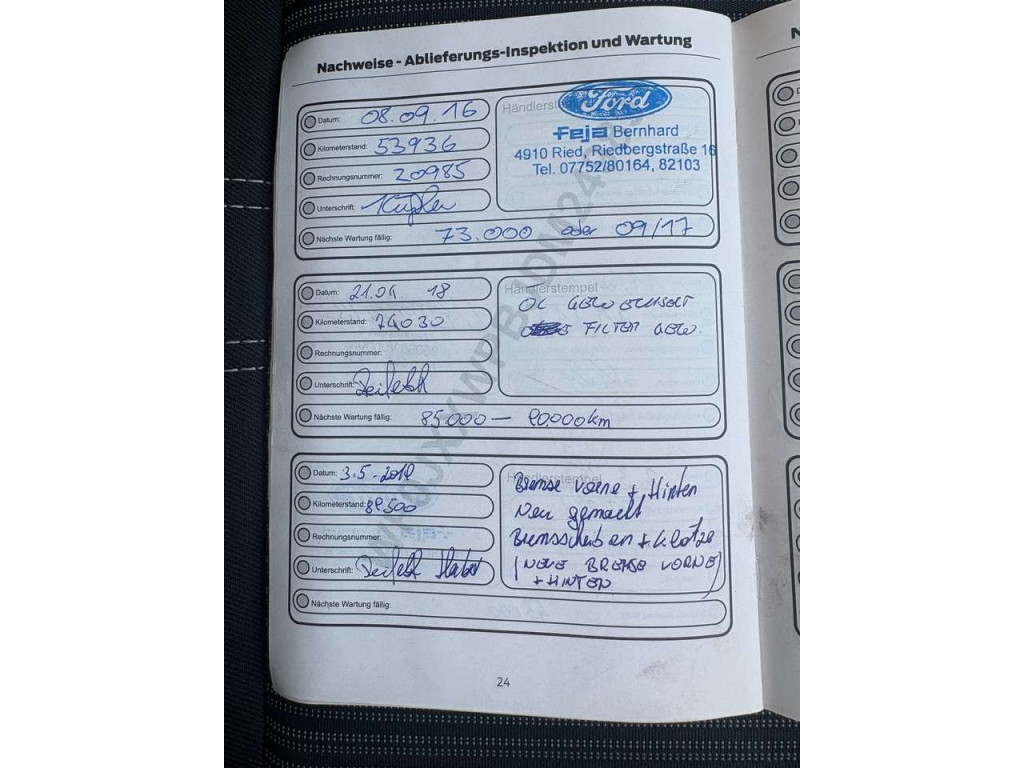 Nachweise - Ablieferungs-Inspektion und Wartung
Datum: 08.09.16
Kilometerstand: 53936
Rechnungsnummer: 20985
Unterschrift:
Nächste Wartung fällig: 73.000 oder 09/17
Händlerst
Ford
Feja Bernhard
4910 Ried, Riedbergstraße 16
Tel. 07752/80164, 82103
Datum: 21.04 18
Kilometerstand: 74030
Rechnungsnummer:
Unterschrift:
Nächste Wartung fällig: 85000 - 90000km
Händlerstempel
ÖL GEWECHSELT
FILTER GEW.
Datum: 3.5-2019
Kilometerstand: 89500
Rechnungsnummer:
Unterschrift:
Nächste Wartung fällig:
Händlerstempel
Bremse vorne + Hinten
Neu gemacht
Bremsscheiben + Klötze
(NEUE BREMSE VORNE)
+ HINTEN
24